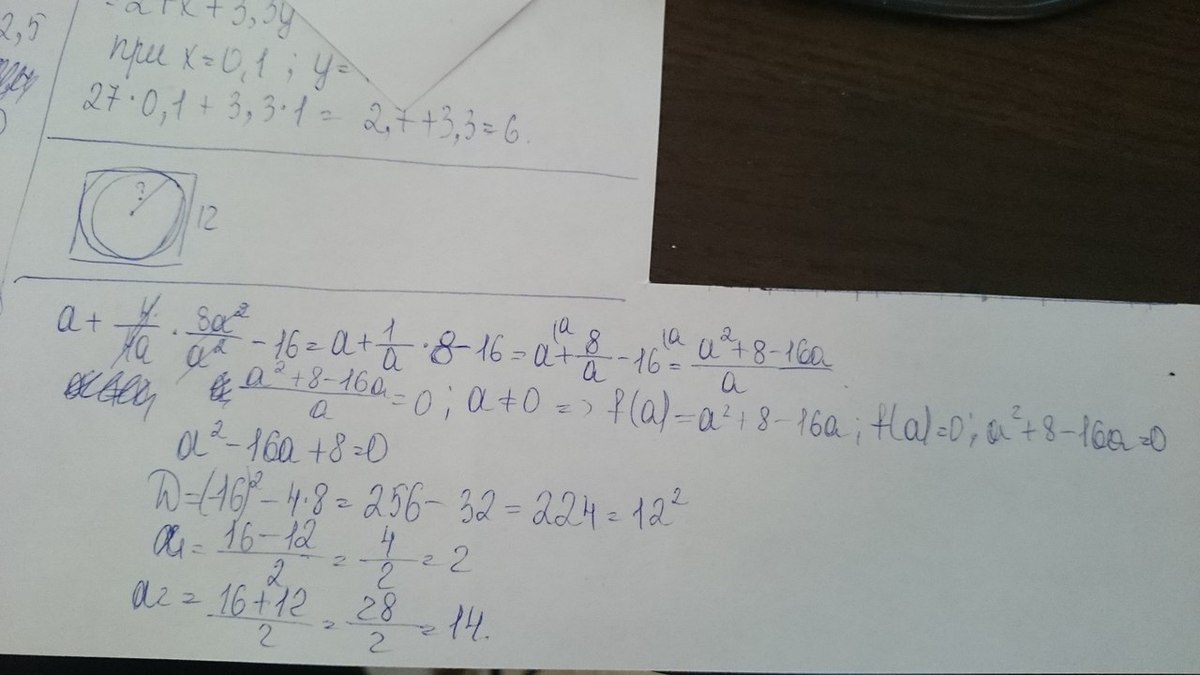 2,5
-27x+3,3y
при x=0,1; y=
27·0,1+3,3·1= 2,7+3,3=6.
?
12
a+ 4/4a · 8a²/a² -16=a+ 1/a ·8-16=a+ 8/a -16= a²+8-16a/a
a²+8-16a/a =0; a≠0 => f(a)=a²+8-16a; f(a)=0; a²+8-16a=0
a²-16a+8=0
D=(-16)²-4·8=256-32=224=12²
a₁= 16-12/2 = 4/2 =2
a₂= 16+12/2 = 28/2 =14.